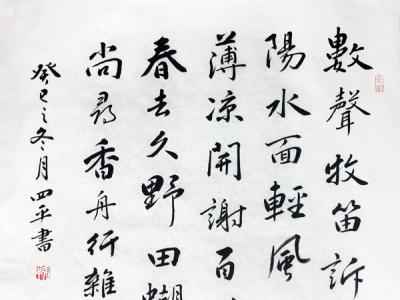 數聲牧笛訴
陽水面輕風
薄涼開謝百
春去久野田蝴
尚尋香舟行雜
癸巳之冬月四平書